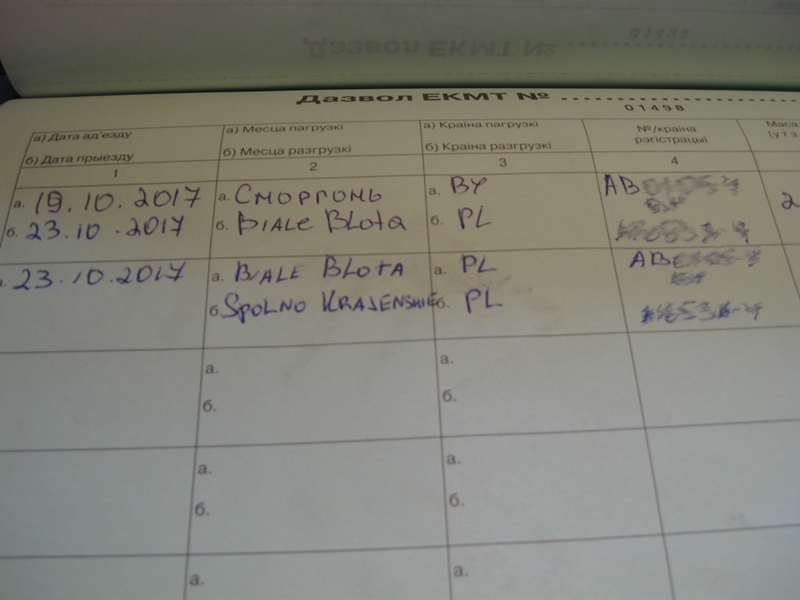 Дазвол ЕКМТ № 01498
Дазвол ЕКМТ №
01498
а) Дата ад'езду
б) Дата прыезду
а) Месца пагрузкі
б) Месца разгрузкі
а) Краіна пагрузкі
б) Краіна разгрузкі
№/краіна
рэгістрацыі
Маса
(у т з
1
2
3
4
а. 19.10.2017
а. Сморгонь
а. BY
АВ
б. 23.10.2017
б. BIALE BLOTA
б. PL
2
а. 23.10.2017
а. BIALE BLOTA
а. PL
АВ
б. SPOLNO KRAJENSKIE
б. PL
а.
а.
б.
б.
а.
а.
б.
б.
а.
а.